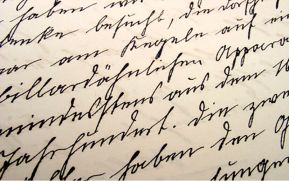 haben wir
denke besucht, die dorf
war am Kegeln auf ein
billardähnlichen Appara
mindestens aus dem 16
Jahrhundert. Die zwe
haben den